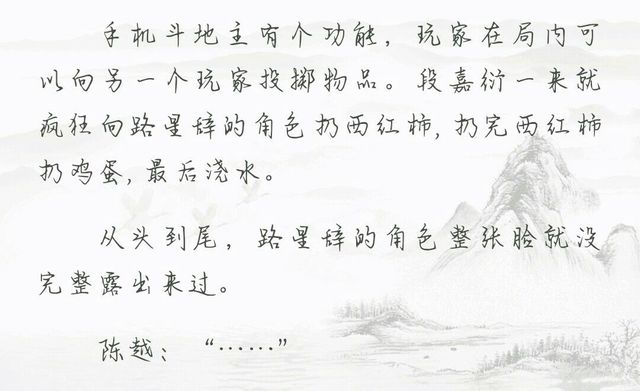 手机斗地主有个功能，玩家在局内可
以向另一个玩家投掷物品。段嘉衍一来就
疯狂向路星辞的角色扔西红柿，扔完西红柿
扔鸡蛋，最后浇水。
从头到尾，路星辞的角色整张脸就没
完整露出来过。
陈越：“……”